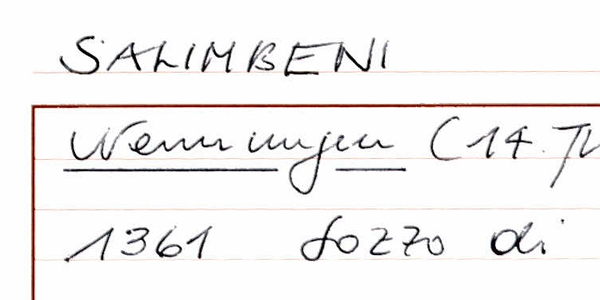 SALIMBENI
Nennungen (14. Jh
1361 Sozzo di